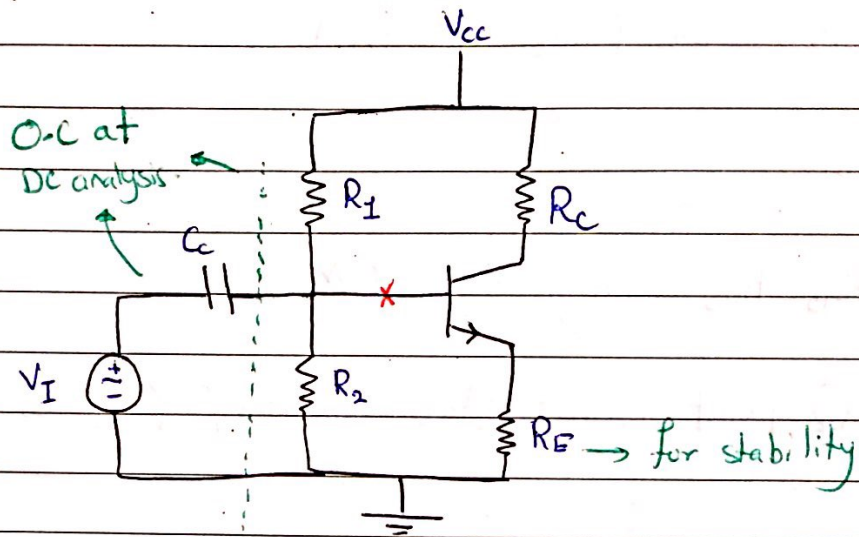 Vcc
O.C at
DC analysis
R1
Rc
Cc
x
VI
+
R2
RE → for stability